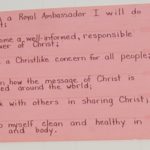 a Royal Ambassador I will do
t;
ome a well-informed, responsible
wer of Christ;
a Christlike concern for all people;
n how the message of Christ is
ied around the world;
k with others in sharing Christ;
p myself clean and healthy in
and body.